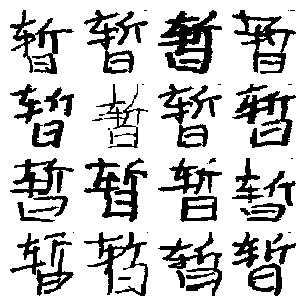 暂暂暂暂
暂暂暂暂
暂暂暂暂
暂暂暂暂